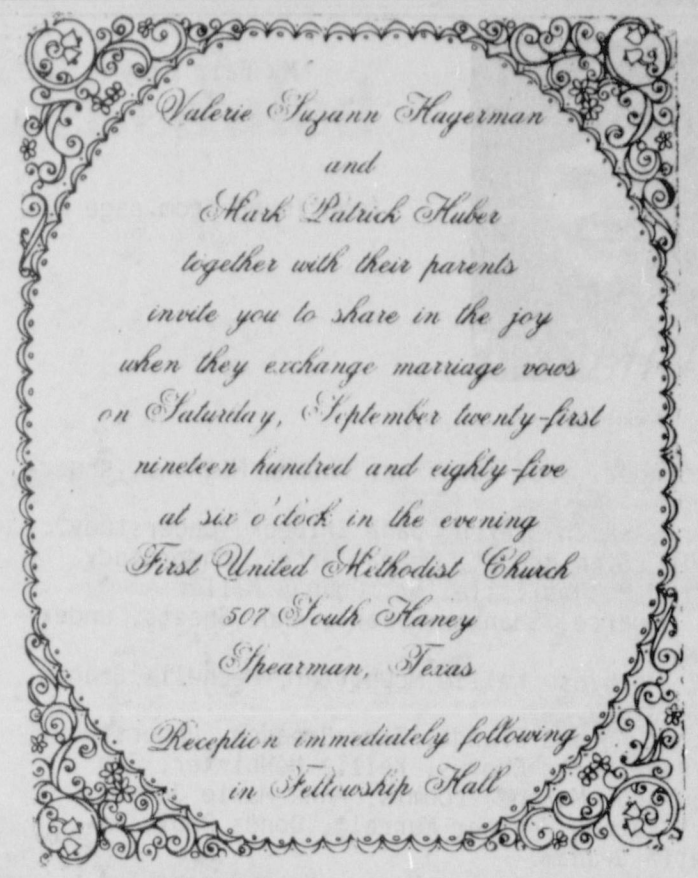 Valerie Suzann Hagerman
and
Mark Patrick Huber
together with their parents
invite you to share in the joy
when they exchange marriage vows
on Saturday, September twenty-first
nineteen hundred and eighty-five
at six o'clock in the evening
First United Methodist Church
507 South Haney
Spearman, Texas
Reception immediately following
in Fellowship Hall